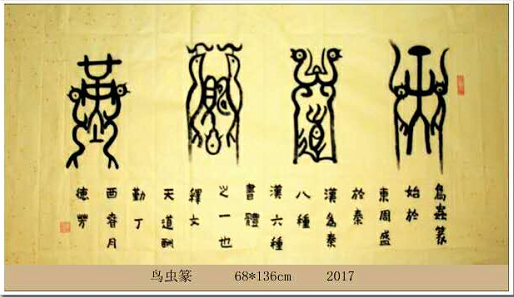 天道酬勤
鳥蟲篆
始於
東周盛
於秦
漢為秦
八種
漢六種
書體
之一也
釋文
天道酬
勤丁
酉春月
德芳
鸟虫篆 68*136cm 2017